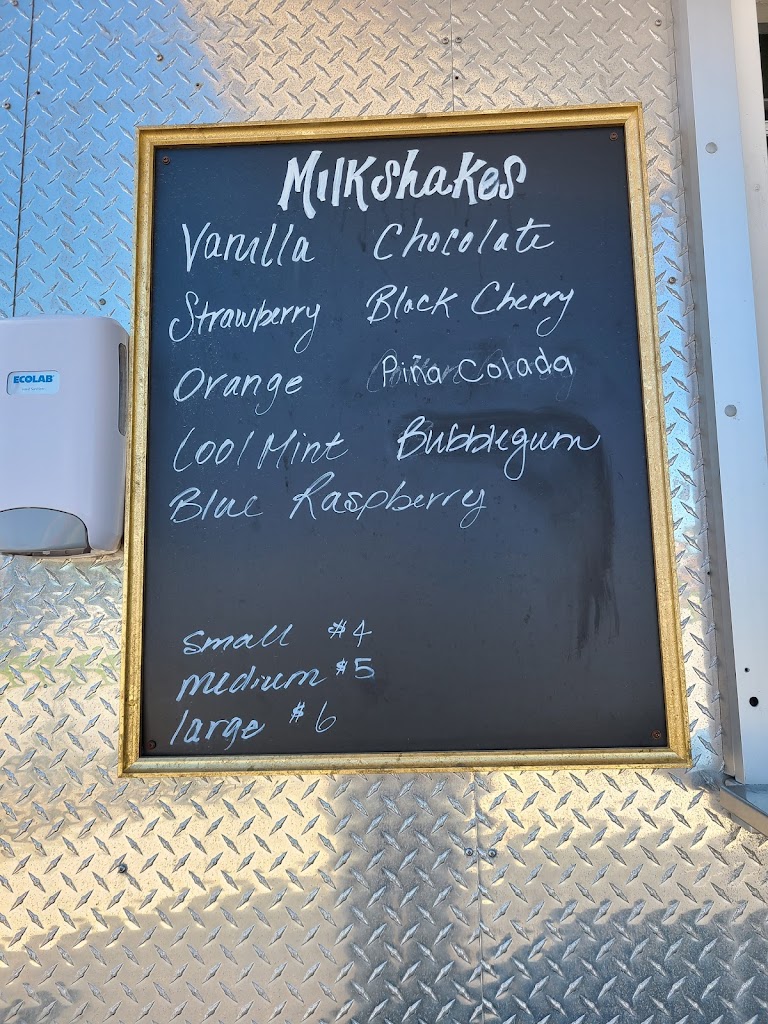 Milkshakes
Vanilla Chocolate
Strawberry Black Cherry
Orange Piña Colada
Cool Mint Bubblegum
Blue Raspberry
small $4
medium $5
large $6
ECOLAB